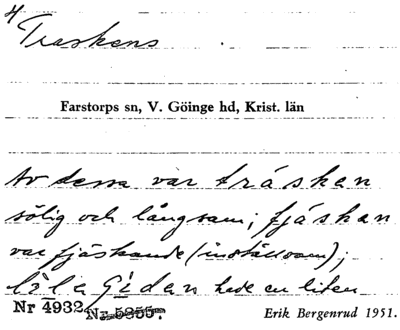 4)
Traskens
Farstorps sn, V. Göinge hd, Krist. län
Av dessa var tráskan
sölig och långsam; fjáskan
var fjäskande (inställsam);
lila Gidan hade en liten
Nr 4932 Nr 5855.
Erik Bergenrud 1951.